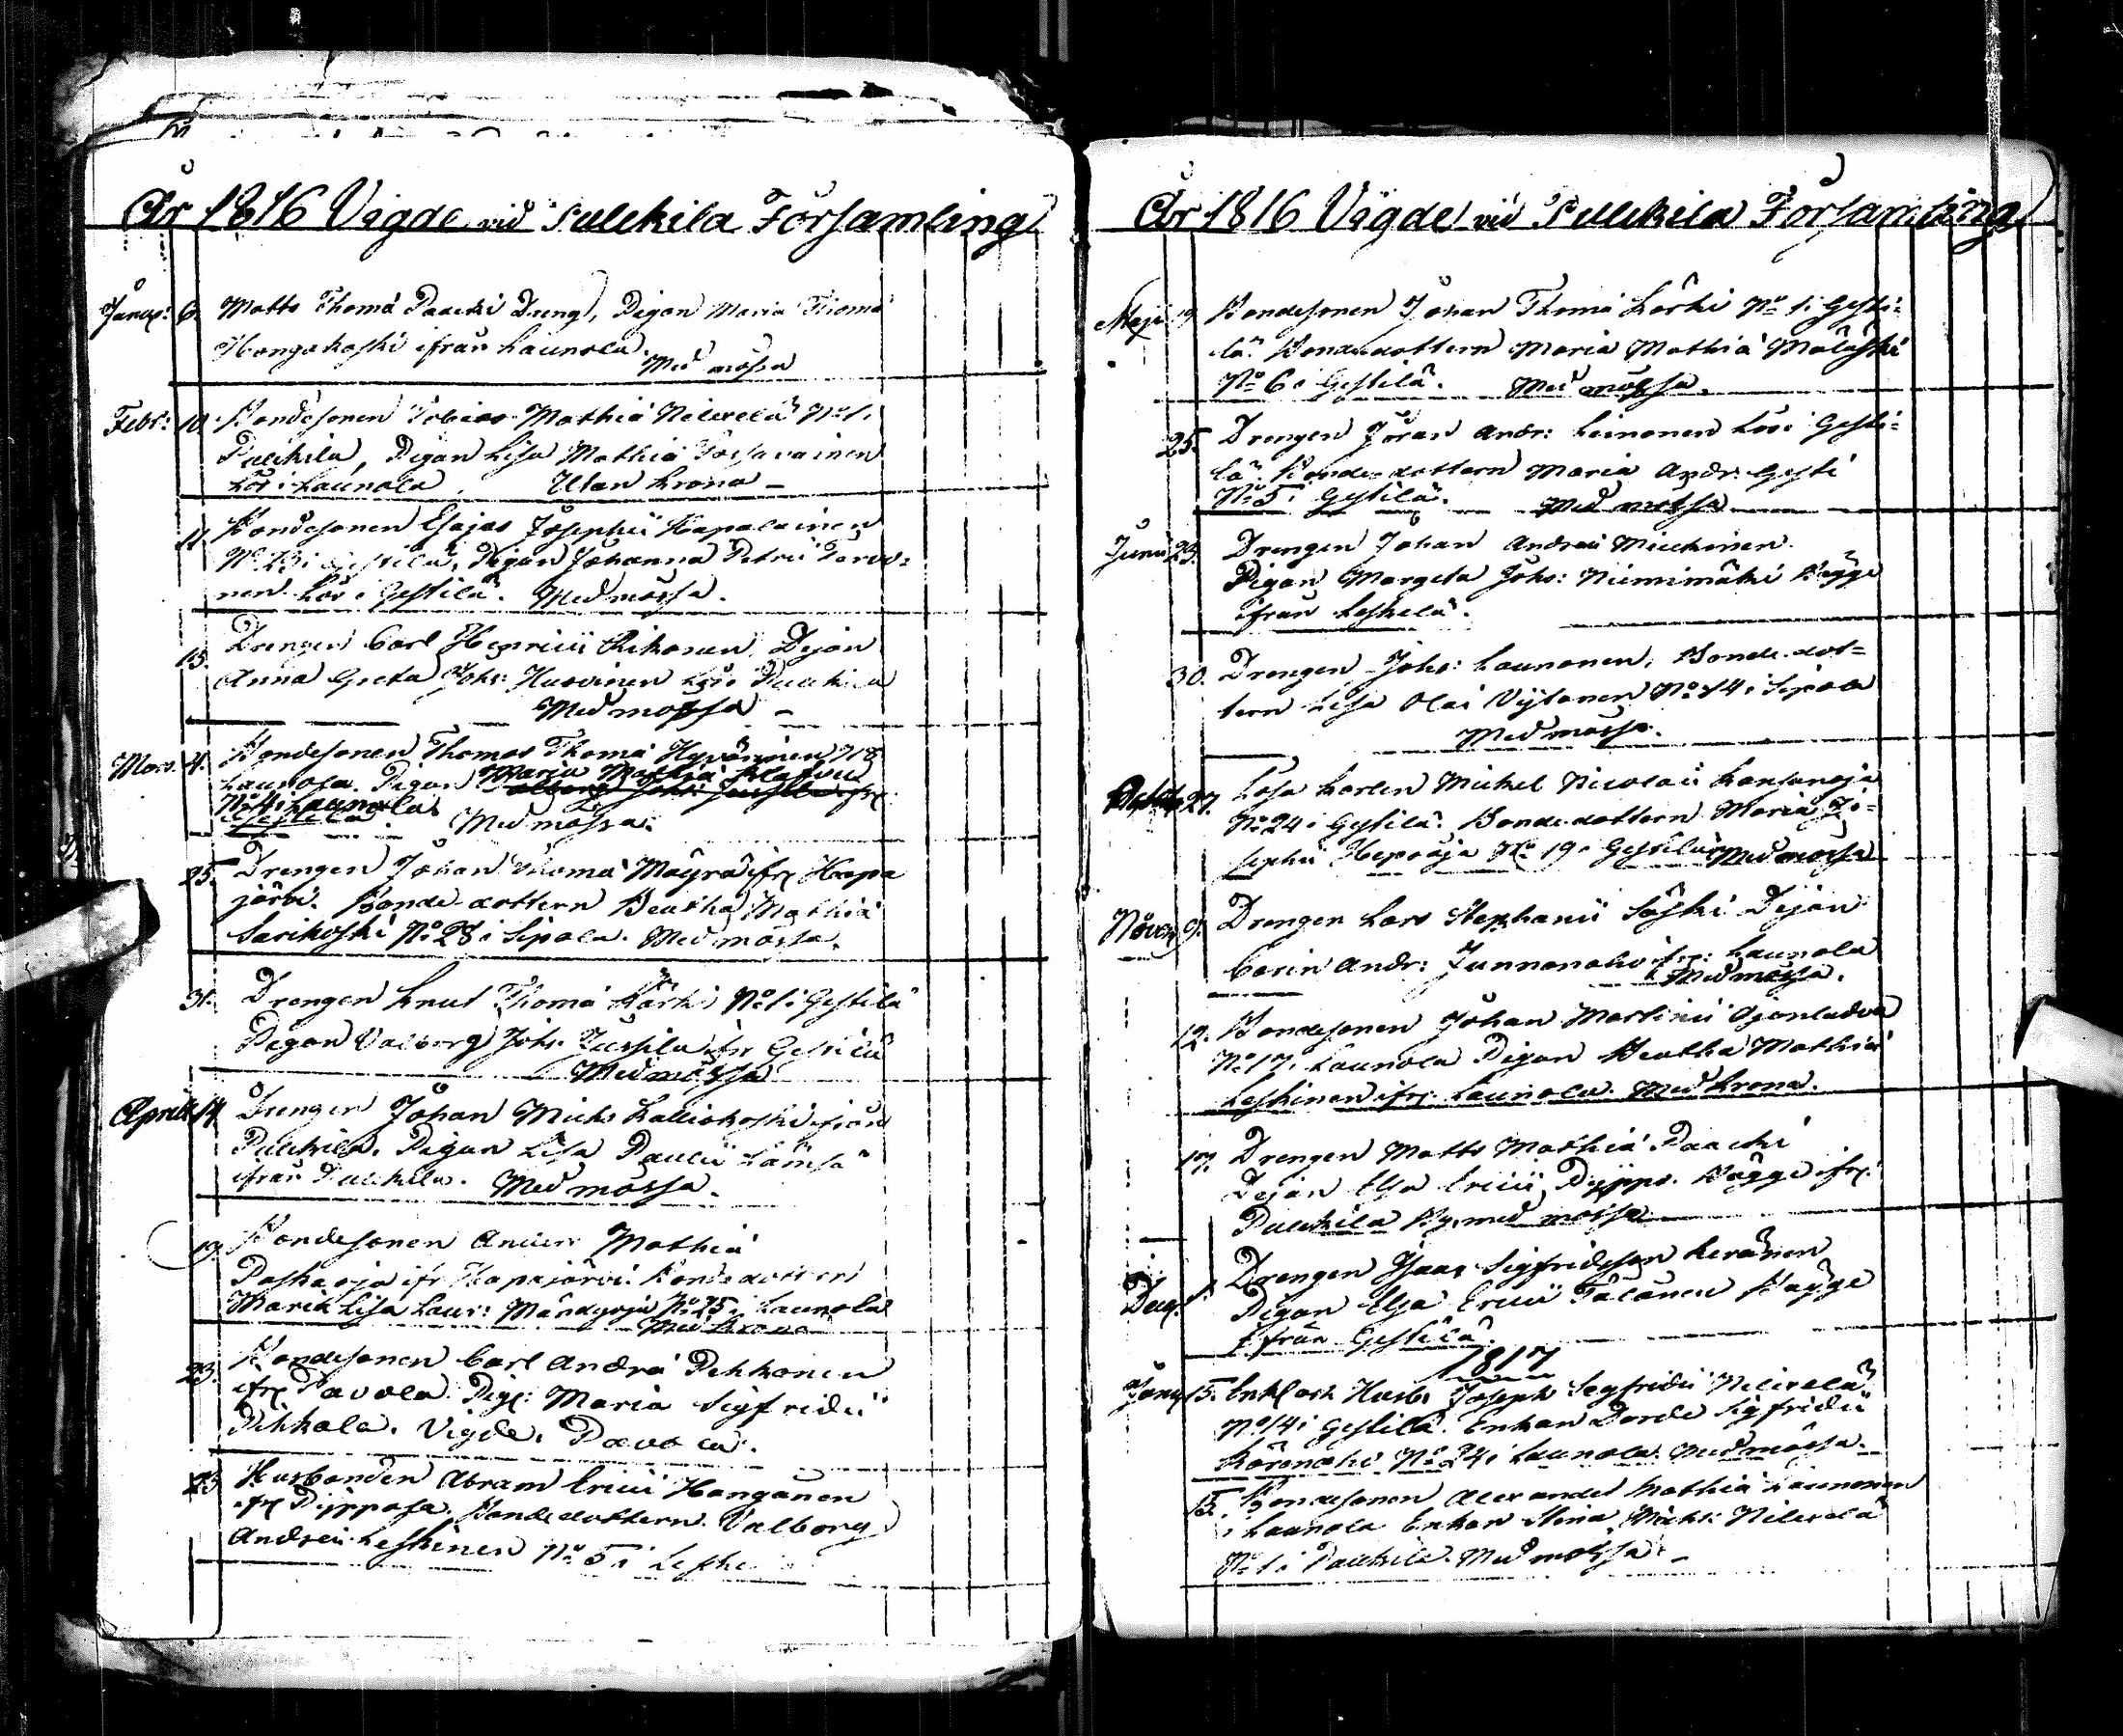 År 1816 Vigde vid Pulckila Församling
Januar: 6. Matts Thomæ Paacki Dreng, Pigan Maria Thomæ
Hongakoski ifrån Launola.
Med mössa
Febr: 10. Bondesonen Tobias Mathiæ Nilivelä No 1.
Pulckila, Pigan Lisa Mathiæ Tossavainen
Lös i Launola, Utan krona
11. Bondesonen Esajas Josephii Kapalainen
No 23 i Gestilä, Pigan Johanna Petri Torvi-
nen Lös i Gestilä. Med mössa.
15. Drengen Carl Henricii Rikonen, Pigan
Anna Greta Johs: Huovinen Lös i Pulckila
Med mössa
Mars. 4. Bondesonen Thomas Thomæ Hyvärinen No 8
Launola. Pigan Maria Mathiæ
No 4 i Launola
Med mössa.
25. Drengen Johan Thomæ Mäyrä ifr: Haapa
järvi. Bonde-dottern Beatha Mathiæ
Sarikoski No 28 i Sipola. Med mössa.
31. Drengen Knut Thomæ Kärki No 1 i Gestilä
Pigan Valborg Johs: Jussila ifr Gestilä
Med mössa
Aprill 14. Drengen Johan Michs Kalliokoski ifrån
Pulckila. Pigan Lisa Paulii Lämsä
ifrån Pulckila. Med mössa.
19. Bondesonen Anders Mathiæ
Paskaoja ifr Hapajärvi. Bondedottern
Maria Lisa Laur: No 25 i Launola
Med Krona
23. Bondesonen Carl Andræ Pekkonen
ifr: Pavola Pig: Maria Sigfridii
Pihkala. Vigde i Pavola.
23 Husbonden Abram Ericii Hangånen
ifr: Pippola. Bondedottern Valborg
Andreii Leskinen No 5 i Leske
År 1816 Vigde vid Pulckila Församling
Maji 19. Bondesonen Johan Thomæ Kärki No 1 i Gesti-
lä. Bondedottern Maria Mathiæ Mäläski
No 6 i Gestilä. Med mössa.
25. Drengen Jöran Andr: Leinonen Lös i Gesti-
lä. Bonde-dottern Maria Andr: Gesti
No 5 i Gestilä. Med mössa
Junii 23. Drengen Johan Andreæ Mickinen
Pigan Margeta Johs: Niemimäki Bägge
ifrån Leskelä.
30. Drengen Johs: Launonen, Bonde-dot-
tern Lisa Olai Vijtanen No 14 i Sipola
Med mössa.
27. Lösa Karlen Michel Nicolaii Kansanoja
No 24 i Gestilä. Bondedottern Maria Jo-
sephii Heposoja No 19 i Gestilä Med mössa
Novem 9. Drengen Lars Stephanii Säski Pigan
Carin Andr: Junnonaho ifr: Launola
Med mössa.
12. Bondesonen Johan Martinii Ojanlatva
No 17. Launola Pigan Beatha Mathiæ
Leskinen ifr: Launola. Med Krona.
17. Drengen Matts Mathiæ Paacki
Pigan Elsa Ericii Pyppo. Bägge ifr:
Pulckila By, med mössa
Dec: 1. Drengen Isaac Sigfridsson Keränen
Pigan Elsa Ericii Tålånen Bägge
ifrån Gestilä.
1817
Janu: 15. Enkl och Husb: Joseph Sigfridii Nilivelä
No 14 i Gestilä. Enkan Dorde Sigfridii
Kärenaho No 24 i Launola. Med mössa.
15. Bondesonen Alexander Mathiæ Launonen
i Launola Enkan Stina Michs: Nilivelä
No 1 i Pulckila. Med mössa.